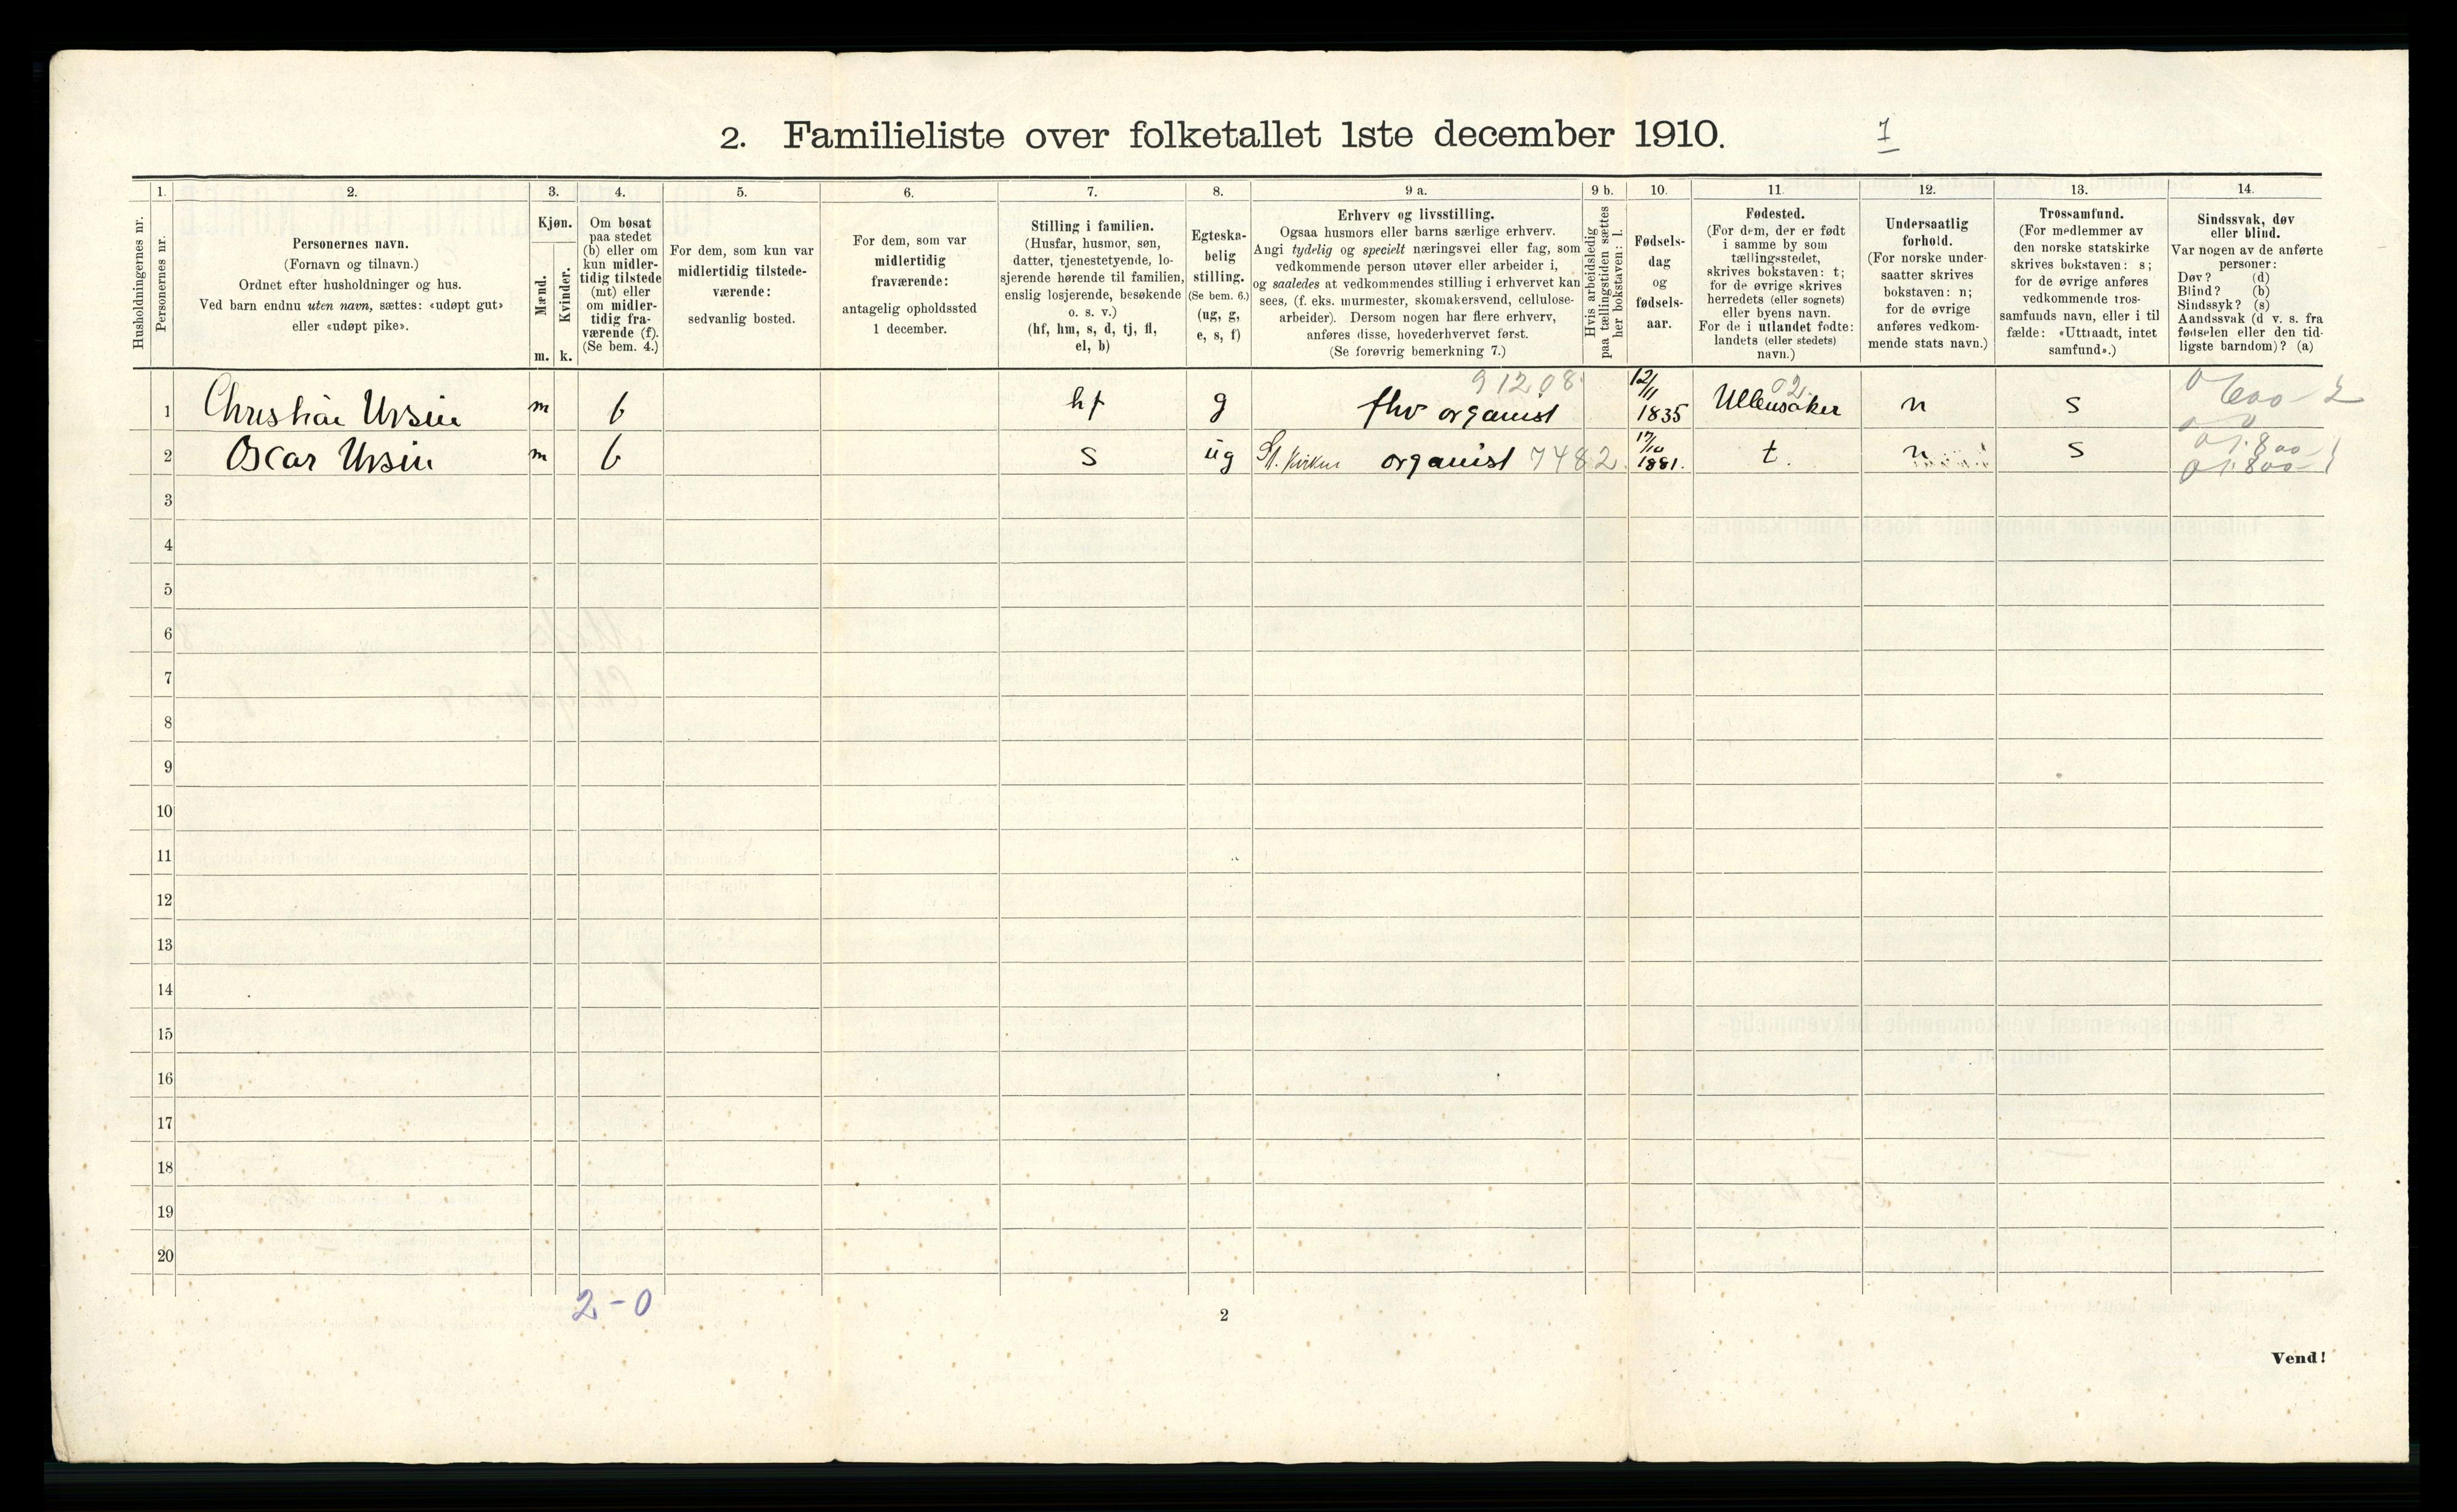 2. Familieliste over folketallet 1ste december 1910. 1
Husholdningernes nr.
1.
Personernes nr.
2.
Personernes navn.
(Fornavn og tilnavn.)
Ordnet efter husholdninger og hus.
Ved barn endnu uten navn, sættes: «udøpt gut»
eller «udøpt pike».
3.
Kjøn.
Mænd.
m.
Kvinder.
k.
4.
Om bosat
paa stedet
(b) eller om
kun midler-
tidig tilstede
(mt) eller
om midler-
tidig fra-
værende (f).
(Se bem. 4.)
5.
For dem, som kun var
midlertidig tilstede-
værende:
sedvanlig bosted.
6.
For dem, som var
midlertidig
fraværende:
antagelig opholdssted
1 december.
7.
Stilling i familien.
(Husfar, husmor, søn,
datter, tjenestetyende, lo-
sjerende hørende til familien,
enslig losjerende, besøkende
o. s. v.)
(hf, hm, s, d, tj, fl,
el, b)
8.
Egteska-
belig
stilling.
(Se bem. 6.)
(ug, g,
e, s, f)
9 a.
Erhverv og livsstilling.
Ogsaa husmors eller barns særlige erhverv.
Angi tydelig og specielt næringsvei eller fag, som
vedkommende person utøver eller arbeider i,
og saaledes at vedkommendes stilling i erhvervet kan
sees, (f. eks. murmester, skomakersvend, cellulose-
arbeider). Dersom nogen har flere erhverv,
anføres disse, hovederhvervet først.
(Se forøvrig bemerkning 7.)
9 b.
Hvis arbeidsledig
paa tællingstiden sættes
her bokstaven: l.
10.
Fødsels-
dag
og
fødsels-
aar.
11.
Fødested.
(For dem, der er født
i samme by som
tællingsstedet,
skrives bokstaven: t;
for de øvrige skrives
herredets (eller sognets)
eller byens navn.
For de i utlandet fødte:
landets (eller stedets)
navn.)
12.
Undersaatlig
forhold.
(For norske under-
saatter skrives
bokstaven: n;
for de øvrige
anføres vedkom-
mende stats navn.)
13.
Trossamfund.
(For medlemmer av
den norske statskirke
skrives bokstaven: s;
for de øvrige anføres
vedkommende tros-
samfunds navn, eller i til
fælde: «Uttraadt, intet
samfund».)
14.
Sindssvak, døv
eller blind.
Var nogen av de anførte
personer:
Døv? (d)
Blind? (b)
Sindssyk? (s)
Aandssvak (d v. s. fra
fødselen eller den tid-
ligste barndom)? (a)
1 Christian Ursin m b hf g fhv organist 91208 12/11 1835 Ullensaker 02 n s 0 600
2 Oscar Ursin m b s ug St. Kirken organist 7482 17/10 1881. t. n s 0 1.800
0 1.800
3
4
5
6
7
8
9
10
11
12
13
14
15
16
17
18
19
20
2-0
2
Vend!